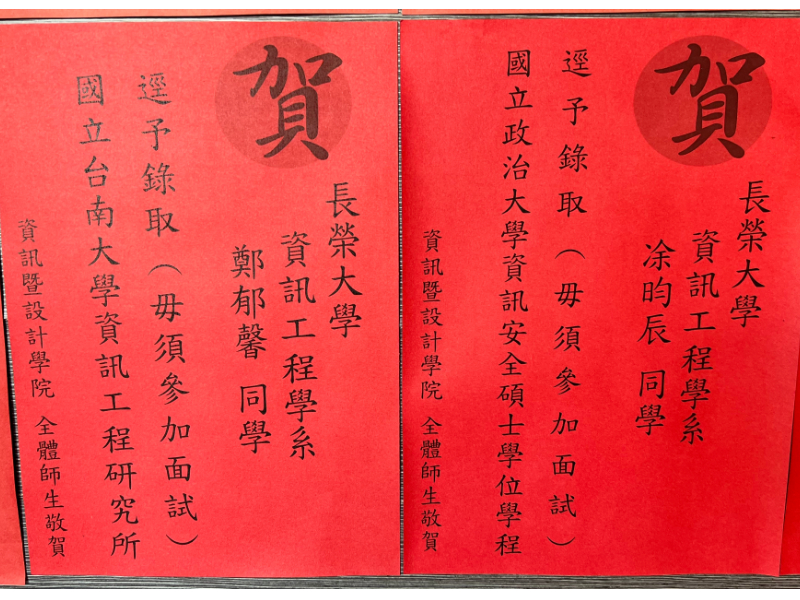 賀
長榮大學
資訊工程學系
凃昀辰 同學
逕予錄取（毋須參加面試）
國立政治大學資訊安全碩士學位學程
資訊暨設計學院 全體師生敬賀
賀
長榮大學
資訊工程學系
鄭郁馨 同學
逕予錄取（毋須參加面試）
國立台南大學資訊工程研究所
資訊暨設計學院 全體師生敬賀